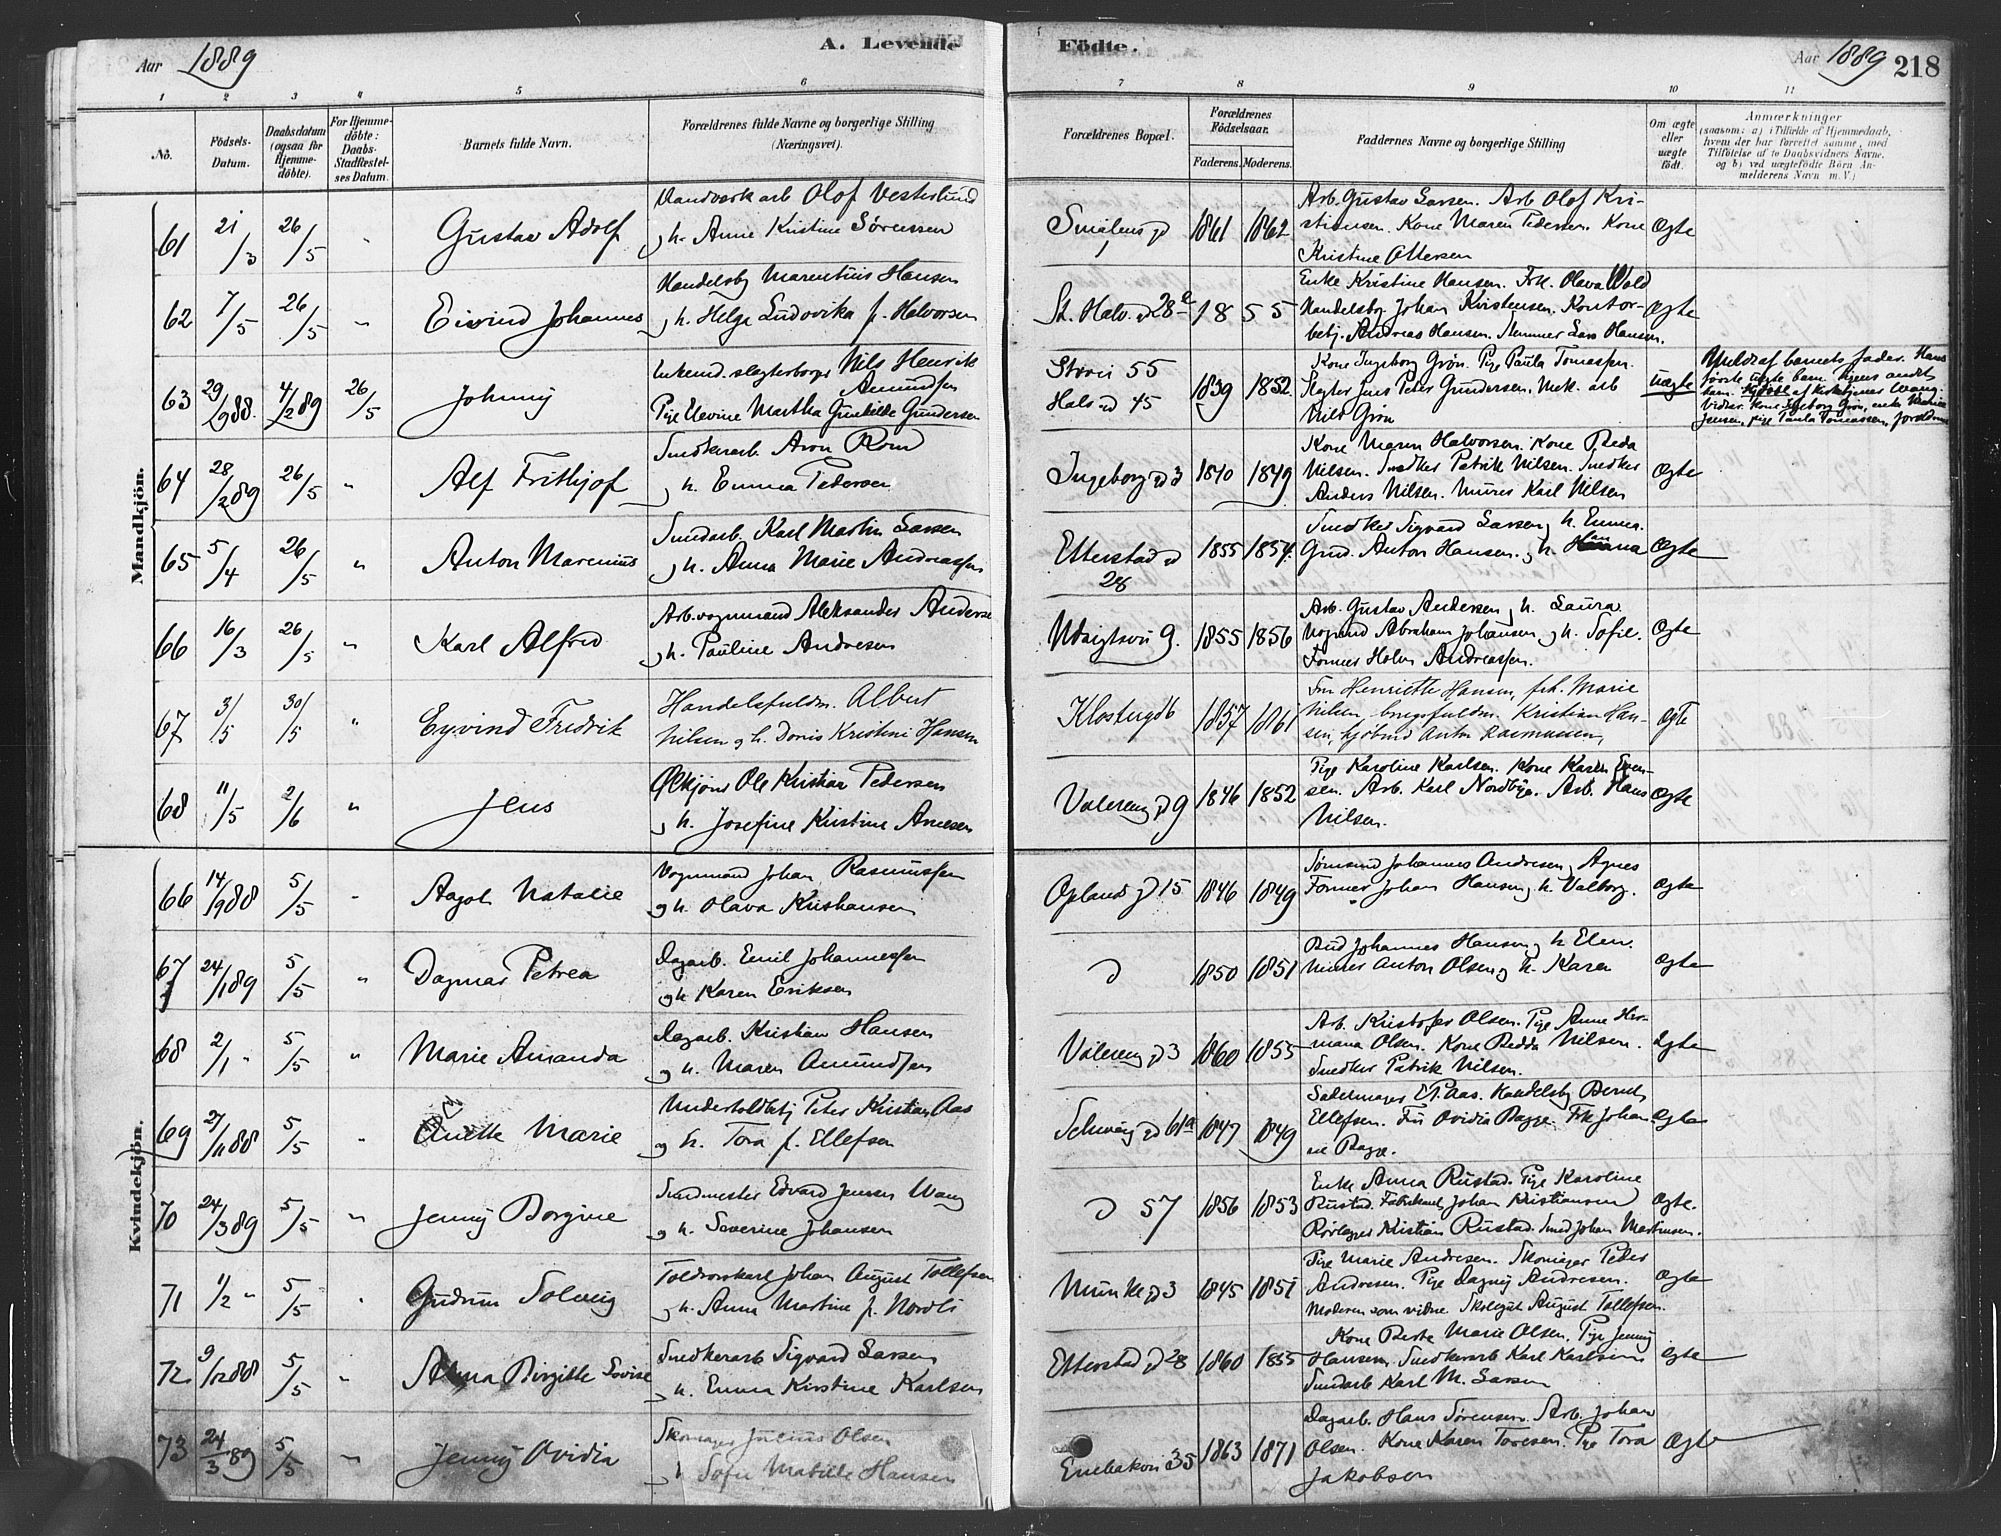 Aar 1889
A. Levende
Födte.
Aar 1889 218
1 2 3 4 5 6 7 8 9 10 11
No.
Födsels-Datum.
Daabsdatum (ogsaa for Hjemme-döbte).
For Hjemme-döbte: Daabs-Stadfæstel-ses Datum.
Barnets fulde Navn.
Forældrenes fulde Navne og borgerlige Stilling (Næringsvei).
Forældrenes Bopæl.
Forældrenes Födselsaar.
Faderens. Moderens.
Faddernes Navne og borgerlige Stilling
Om ægte eller uægte födt.
Anmærkninger
(saasom: a) i Tilfælde af Hjemmedaab, hvem der har forrettet samme, med Tilföielse af to Daabsvidners Navne. og b) ved uægtefödte Börn Anmelderens Navn m. V.)
Mandkjön.
61 21/3 26/5 " Gustav Adolf
Vandværkarb Olof Vesterlund
og h. Anne Kristine Sørensen
Smålens gd 1 1861 1862
Arb. Gustav Larsen. Arb Olof Kri-
stiansen. Kone Maren Pedersen. Kone
Kristine Ottersen
Ægte
62 7/5 26/5 " Eivind Johannes
Handelsb. Marentius Hansen
og h. Helga Ludovika f. Halvorsen
St. Halv. gd 28 e 1855
Enke Kristine Hansen. Frk. Olava Wold
Handelsb. Johan Kristensen. Kontor-
betj. Andreas Hansen. Lars Hansen.
Ægte
63 29/9 88. 4/2 89 26/5 Johnny
Nils Henrik
Amundsen
Pige Elevine Martha Gunhilde Gundersen
55
Hals gd 45 1839 1852.
Kone Ingeborg Grøn. Pige Paula Tomassen.
Slagter Jens Peter Gundersen. Mek. arb
Nils Grøn
Uægte
barnets fader. Hans
første uægte barn. hjemmedøbt af
Vidner. Kone Ingeborg Grøn, enke
Jensen, pige Paula Tomassen, forældrene
64 28/2 89 26/5 " Alf Frithjof
Snedkerarb. Aron Rom
og h. Emma Pedersen
Ingeborg gd 3 1840 1849
Kone Maren Halvorsen. Kone Beda
Nilsen. Snedker Patrik Nilsen. Snedker
Anders Nilsen. Murer Karl Nilsen
Ægte
65 5/4 26/5 " Anton Marenius
Karl Martin Larsen
og h. Anna Marie Andreassen
Etterstad gd 28 1855 1854.
Snedker Sigvard Larsen og h. Emma.
Anton Hansen og h. Hanna
Ægte
66 16/3 26/5 " Karl Alfred
Arb. vognmand Aleksander Anderse
og h. Pauline Andresen
Udsigtsvei 9. 1855 1856
Arb. Gustav Andersen og h. Laura
Vognmd Abraham Johansen og h. Sofie.
Former Halvor Andreassen.
Ægte
67 3/5 30/5 " Eyvind Fredrik
Handelsfuldm. Albert
Nilsen og h. Doris Kristine Hansen
Klostergd 6 1857 1861
Fru Henriette Hansen, frk. Marie
Nilsen, fuldm. Kristian Han-
sen, kjøbmd Anton Rasmussen,
Ægte
68 11/5 2/6 " Jens
Ølkjører Ole Kristian Pedersen
og h. Josefine Kristine Arnesen
Valereng gd 9 1846 1852
Pige Karoline Karlsen. Kone Karen Even-
sen. Arb. Karl Nordbye. Arb. Hans
Nilsen.
Ægte
Kvindekjön.
66 14/9 88 5/5 " Aagot Natalie
Vognmand Johan Rasmussen
og h. Olava Kristiansen
Opland gd 15 1846 1849
Johannes Andresen og Agnes
Former Johan Hansen og h. Valborg.
Ægte
67 24/1 89 5/5 " Dagmar Petrea
Dagarb. Emil Johannessen
og h. Karen Eriksen
D 1850 1851
Bud Johannes Hansen og h Elen.
Murer Anton Olsen og h. Karen
Ægte
68 2/1 " 5/5 " Marie Amanda
Dagarb. Kristian Hansen
og h. Maren Amundsen
Valereng gd 3 1860 1855
Arb. Kristofer Olsen. Pige Anne Her-
mana Olsen. Kone Bedda Nilsen.
Snedker Patrik Nilsen.
Ægte
69 27/11 88 5/5 " Anette Marie
Underholdbetj Peter Kristian Aas
og h. Tora f. Ellefsen
Schweig gd 61a 1847 1849
Sadelmager E. P. Aas. Handelsb Bernt
Ellefsen. Fru Ovidia Bagge. Frk Johan
ne Bagge.
Ægte
70 24/3 89 5/5 " Jenny Borgine
Edvard Jensen Wang
og h. Severine Johansen
D 57 1856 1853
Enke Anna Rustad. Pige Karoline
Rustad. Fabrikarb Johan Kristiansen
Rørlægger Kristian Rustad. Smed Johan Martinsen.
Ægte.
71 1/2 " 5/5 " Gudrun Solveig
Toldvovskarl Johan August Tollefsen
og h. Anna Martine f. Nordli
Munke gd 3 1845 1851
Pige Marie Andresen. Skomager Peder
Andresen. Pige Dagny Andresen.
Moderen som vidne. Skolegut August Tollefsen.
Ægte
72 9/12 88 5/5 " Alma Birgitte Lovise
Snedkerarb Sigvard Larsen
og h. Emma Kirstine Karlsen
Etterstad gd 28 1860 1855
Kone Berte Marie Olsen. Pige Jenny
Hansen. Snedkerarb Karl Karlsen
Karl M. Larsen
Ægte
73 24/3 89 5/5 " Jenny Ovidia
Skomager Julius Olsen
og h Sofie Matilde Hansen
Enebakvei 35 1863 1871
Dagarb. Hans Sørensen. Arb. Johan
Olsen. Kone Karen Toresen. Pige Tora
Jakobsen
Ægte